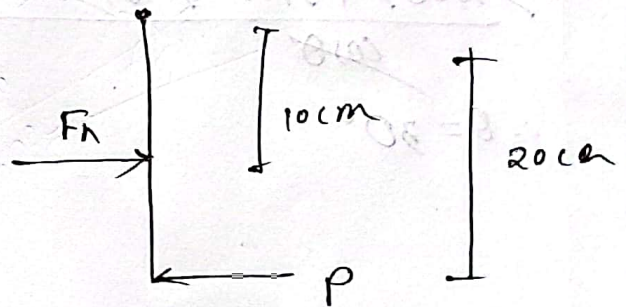 Fn
10cm
20cm
P